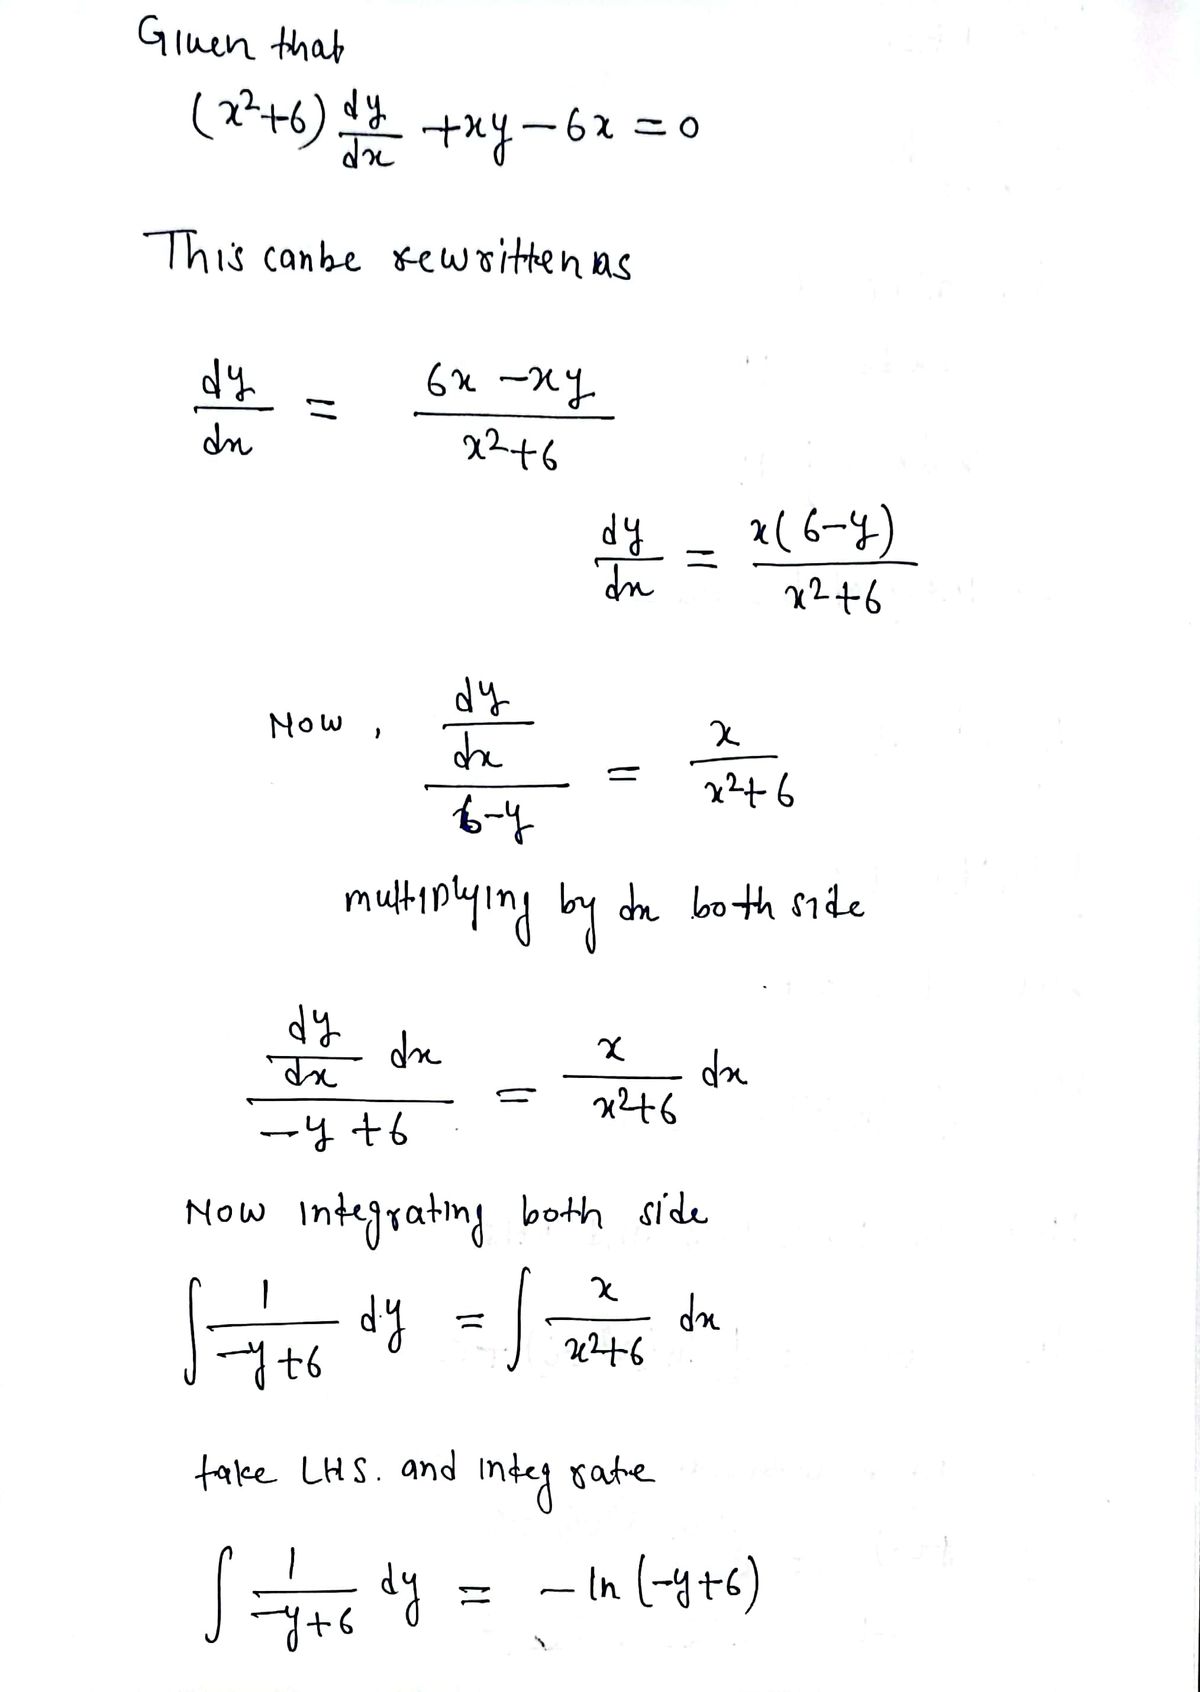 Given that
(x²+6) dy/dx +xy-6x =0
This canbe rewritten as
dy/dx = (6x -xy)/(x²+6)
dy/dx = x(6-y)/(x²+6)
Now, (dy/dx)/(6-y) = x/(x²+6)
multiplying by dx both side
(dy/dx dx)/(-y+6) = x/(x²+6) dx
Now integrating both side
∫ 1/(-y+6) dy = ∫ x/(x²+6) dx
take LHS. and integrate
∫ 1/(-y+6) dy = - ln (-y+6)